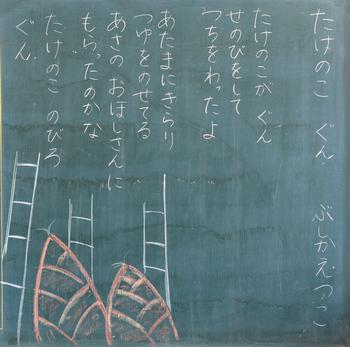 たけのこ ぐん ぶしかえつこ
たけのこが ぐん
せのびをして
つちをわったよ
あたまにきらり
つゆをのせてる
あさの おほしさんに
もらったのかな
たけのこ のびろ
ぐん